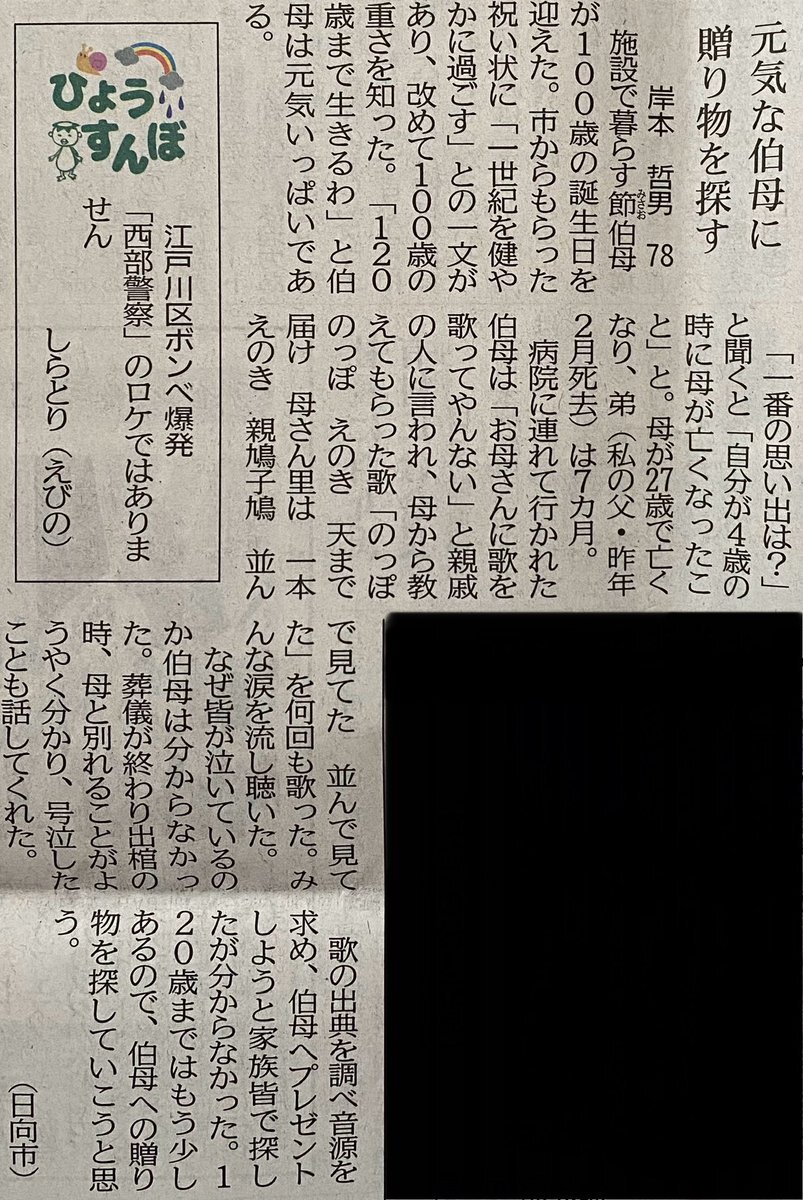 元気な伯母に
贈り物を探す
岸本　哲男　78
施設で暮らす節伯母
みさお
が100歳の誕生日を
迎えた。市からもらった
祝い状に「一世紀を健や
かに過ごす」との一文が
あり、改めて100歳の
重さを知った。「120
歳まで生きるわ」と伯
母は元気いっぱいであ
る。
「一番の思い出は？」
と聞くと「自分が4歳の
時に母が亡くなったこ
と」と。母が27歳で亡く
なり、弟（私の父・昨年
2月死去）は7カ月。
病院に連れて行かれた
伯母は「お母さんに歌を
歌ってやんない」と親戚
の人に言われ、母から教
えてもらった歌「のっぽ
のっぽ　えのき　天まで
届け　母さん里は　一本
えのき　親鳩子鳩　並ん
で見てた　並んで見て
た」を何回も歌った。み
んな涙を流し聴いた。
なぜ皆が泣いているの
か伯母は分からなかっ
た。葬儀が終わり出棺の
時、母と別れることがよ
うやく分かり、号泣した
ことも話してくれた。
歌の出典を調べ音源を
求め、伯母へプレゼント
しようと家族皆で探し
たが分からなかった。1
20歳まではもう少し
あるので、伯母への贈り
物を探していこうと思
う。
（日向市）
ひょう
すんぼ
江戸川区ボンベ爆発
「西部警察」のロケではありま
せん
しらとり（えびの）